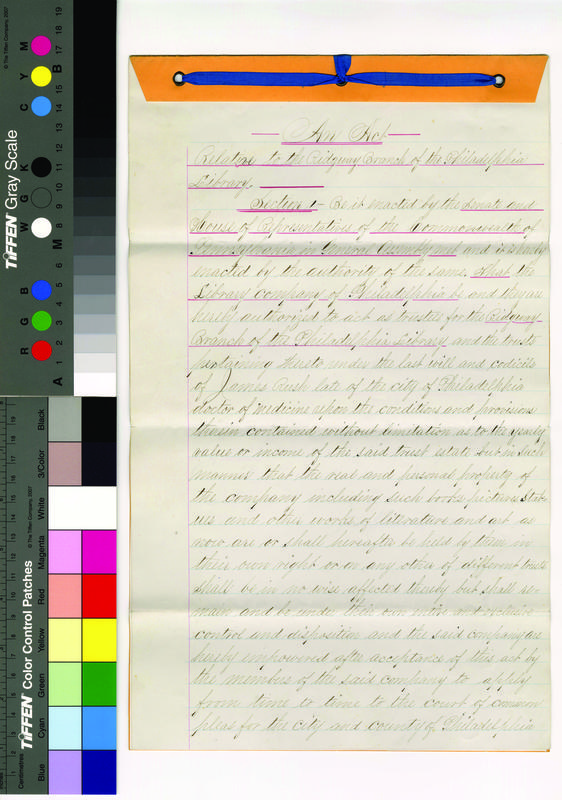 An Act
Relative to the Ridgway Branch of the Philadelphia
Library.
Section 1 Be it enacted by the Senate and
House of Representatives of the Commonwealth of
Pennsylvania in General Assembly met and it is hereby
enacted by the authority of the same, That the
Library company of Philadelphia be and they are
hereby authorized to act as trustee for the Ridgway
Branch of the Philadelphia Library and the trusts
pertaining thereto under the last will and codicils
of James Rush late of the city of Philadelphia
doctor of medicine upon the conditions and provisions
therein contained without limitation as to the yearly
value or income of the said trust estate but in such
manner that the real and personal property of
the company including such books pictures stat-
ues and other works of literature and art as
now are or shall hereafter be held by them in
their own right or on any other of different trusts
shall be in no wise affected thereby but shall re-
main and be under their own entire and exclusive
control and disposition and the said company are
hereby empowered after acceptance of this act by
the members of the said company to apply
from time to time to the court of common
pleas for the city and county of Philadelphia
TIFFEN Gray Scale
© The Tiffen Company, 2007
R G B W G K C Y M
A 1 2 3 4 5 6 M 8 9 10 11 12 13 14 15 B 17 18 19
TIFFEN Color Control Patches
© The Tiffen Company, 2007
Centimetres
Blue Cyan Green Yellow Red Magenta White 3/Color Black